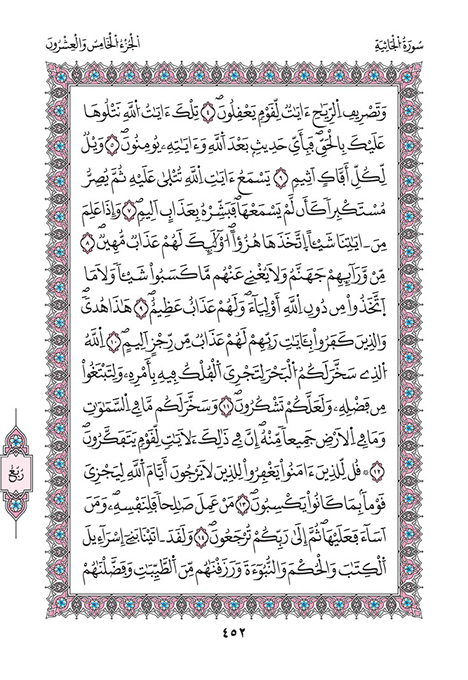 سُورَةُ الْجَاثِيَةِ
الْجُزْءُ الْخَامِسُ وَالْعِشْرُونَ
وَتَصْرِيفِ اِلرِّيَٰحِ ءَايَٰتٌ لِّقَوْمٍ يَعْقِلُونَۖ ٤ تِلْكَ ءَايَٰتُ اُللَّهِ نَتْلُوهَا
عَلَيْكَ بِالْحَقِّۖ فَبِأَيِّ حَدِيثِۢ بَعْدَ اَللَّهِ وَءَايَٰتِهِۦ يُومِنُونَۖ ٥ وَيْلٞ
لِّكُلِّ أَفَّاكٍ اَثِيمٖ ٦ يَسْمَعُ ءَايَٰتِ اِللَّهِ تُتْلَىٰ عَلَيْهِ ثُمَّ يُصِرُّ
مُسْتَكْبِراٗ كَأَن لَّمْ يَسْمَعْهَاۖ فَبَشِّرْهُ بِعَذَابٍ اَلِيمٖۖ ٧ وَإِذَا عَلِمَ
مِنَ اٰيَٰتِنَا شَيْـٔاً اِتَّخَذَهَا هُزُؤاًۖ ا۟وْلَٰٓئِكَ لَهُمْ عَذَابٞ مُّهِينٞۖ ٨
مِّنْ وَّرَآئِهِمْ جَهَنَّمُ وَلَا يُغْنِے عَنْهُم مَّا كَسَبُواْ شَيْـٔاٗ وَلَا مَا
اَتَّخَذُواْ مِن دُونِ اِللَّهِ أَوْلِيَآءَۖ وَلَهُمْ عَذَابٌ عَظِيمٌۖ ٩ هَٰذَا هُديٗۖ
وَالذِينَ كَفَرُواْ بِـَٔايَٰتِ رَبِّهِمْ لَهُمْ عَذَابٞ مِّن رِّجْزٍ اَلِيمٖۖ ١٠ اِ۬للَّهُ
اُ۬لذِے سَخَّرَ لَكُمُ اُ۬لْبَحْرَ لِتَجْرِيَ اَ۬لْفُلْكُ فِيهِ بِأَمْرِهِۦ وَلِتَبْتَغُواْ
مِن فَضْلِهِۦ وَلَعَلَّكُمْ تَشْكُرُونَۖ ١١ وَسَخَّرَ لَكُم مَّا فِے اِ۬لسَّمَٰوَٰتِ
وَمَا فِے اِ۬لَارْضِ جَمِيعاٗ مِّنْهُۖ إِنَّ فِے ذَٰلِكَ لَأٓيَٰتٖ لِّقَوْمٖ يَتَفَكَّرُونَۖ
١٢ ۞ قُل لِّلذِينَ ءَامَنُواْ يَغْفِرُواْ لِلذِينَ لَا يَرْجُونَ أَيَّامَ اَ۬للَّهِ لِيَجْزِيَ
قَوْماَۢ بِمَا كَانُواْ يَكْسِبُونَۖ ١٣ مَنْ عَمِلَ صَٰلِحاٗ فَلِنَفْسِهِۦۖ وَمَنَ
اَسَآءَ فَعَلَيْهَاۖ ثُمَّ إِلَىٰ رَبِّكُمْ تُرْجَعُونَۖ ١٤ وَلَقَدَ اٰتَيْنَا بَنِےٓ إِسْرَآءِيلَ
اَ۬لْكِتَٰبَ وَالْحُكْمَ وَالنُّبُوٓءَةَ وَرَزَقْنَٰهُم مِّنَ اَ۬لطَّيِّبَٰتِ وَفَضَّلْنَٰهُمْ
رُبُع
٤٥٢